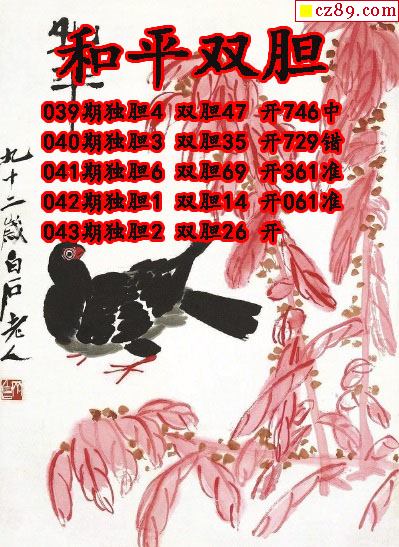 cz89.com
和平双胆
039期独胆4 双胆47 开746中
040期独胆3 双胆35 开729错
041期独胆6 双胆69 开361准
042期独胆1 双胆14 开061准
043期独胆2 双胆26 开
和平
九十二岁白石老人